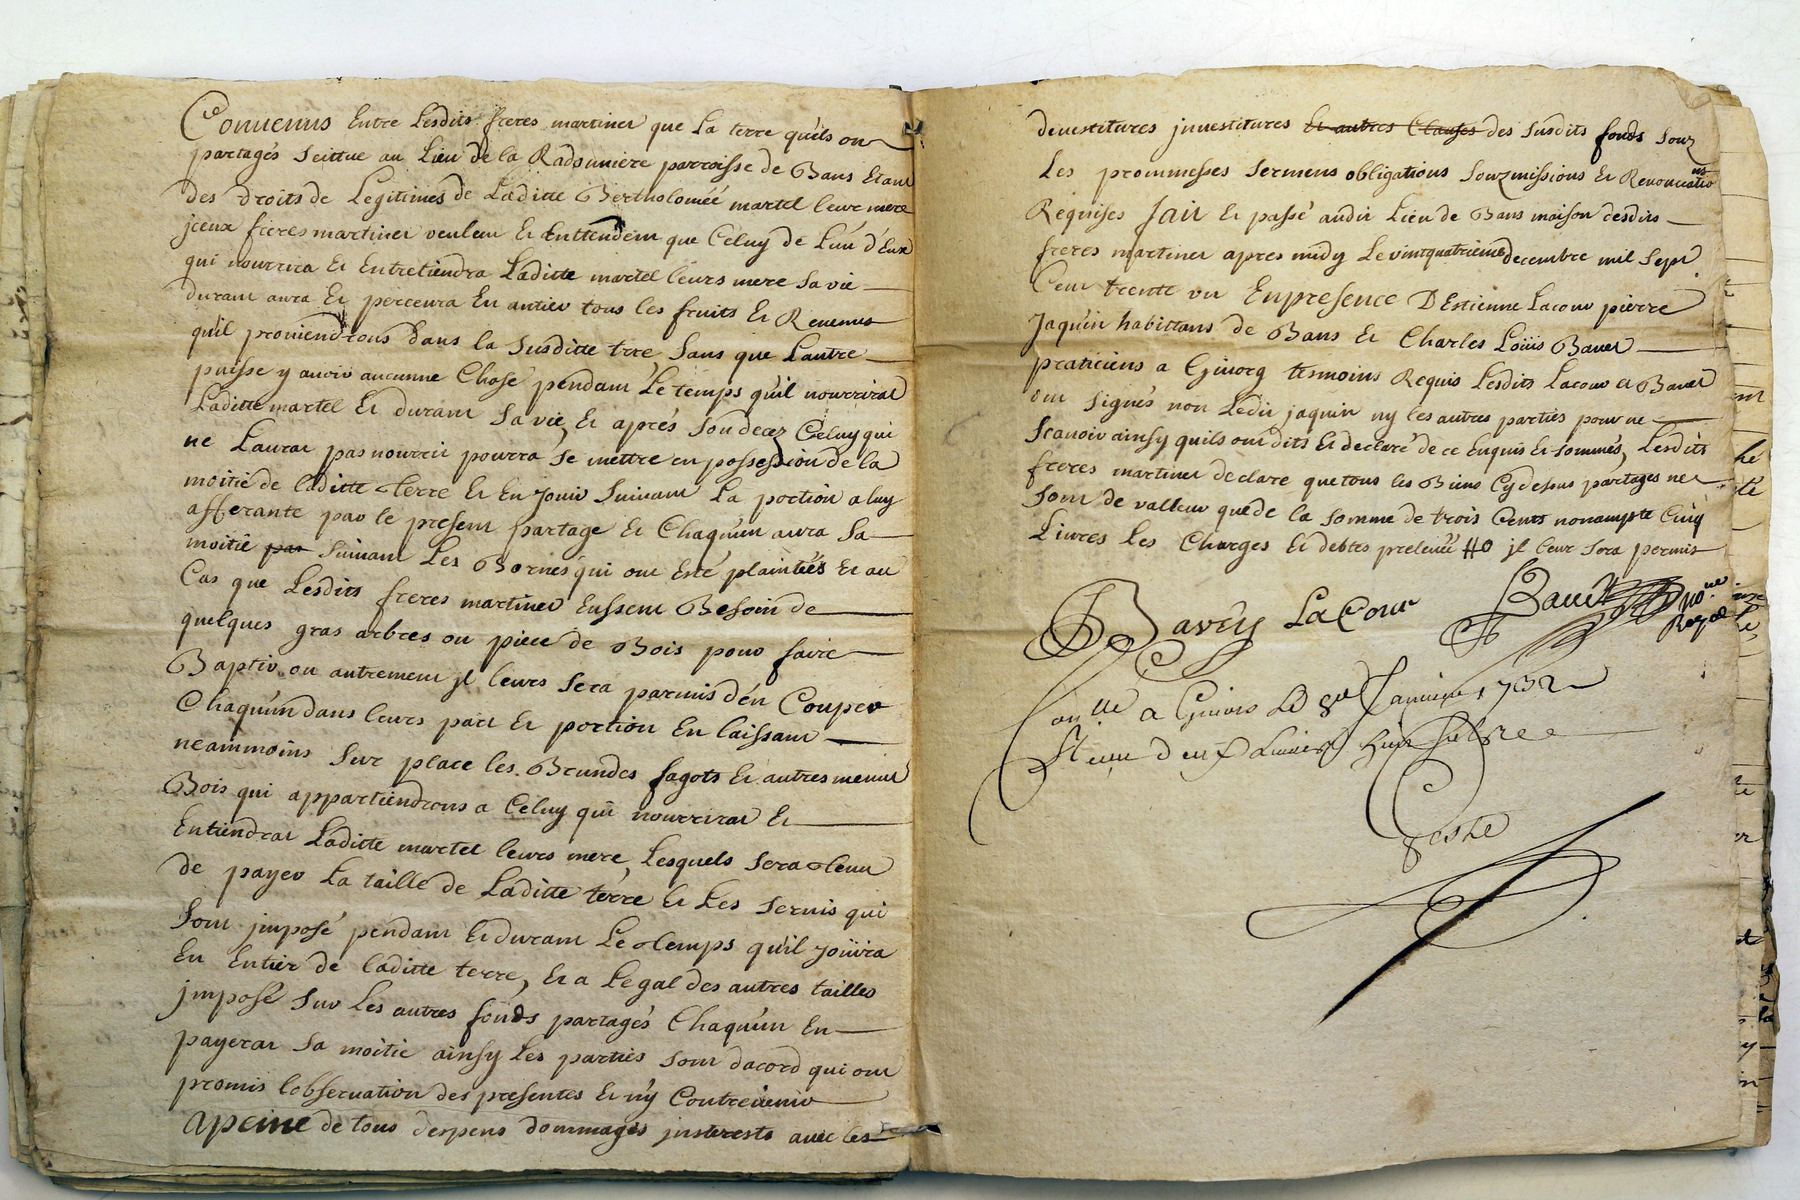 Conuenus Entre Lesdits freres martinet que La terre quils on
partagés scittue au Lieu de la Radouniere parroisse de Bans Etant
des droits de Legitimes de Laditte Bertholomée martel leur mere
jceux freres martinet veulent Et Enttendent que Celuy de Lun d'Eux
qui nourrira Et Entretiendra Laditte martel leurs mere sa vie
durant aura Et perceura En antier tous les fruits Et Reuenus
qu'il prouiendrons dans la susditte trre sans que Lautre
puisse y auoir aucunne Chose pendant Le temps qu'il nourrirat
Laditte martel Et durant sa vie, Et aprés son decez Celuy qui
ne Laurat pas nourrir pourra se mettre en possession de la
moitié de laditte terre Et En Jouir suiuant La portion a luy
afferante par le present partage Et Chaqu'un aura sa
moitié par suiuant Les Bornes qui ont Esté plaintées Et au
Cas que Lesdits freres martinet Eussent Besoin de
quelques gras arbres ou piece de Bois pour faire
Baptir ou autrement jl leurs sera parmis d'en Couper
Chaqu'un dans leurs part Et portion En laissant
neammoins sur place les Brundes fagots Et autres menut
Bois qui appartiendrons a Celuy qui nourrirat Et
Entiendrat Laditte martel leurs mere, Lesquels sera tenu
de payer La taille de Laditte terre Et Les seruis qui
sont jmposé pendant Et durant Le temps qu'il Jouira
En Entier de laditte terre, Et a Legal des autres tailles
jmposé sur Les autres fonds partagés Chaqu'un En
payerat sa moitié ainsy Les parties sont dacord qui ont
promis lobseruation des presentes Et n'y Contreuenir
apeine de tous despens dommages jnsterests auec les
deuestitures jnuestitures Et autres Clauses des susdits fonds souz
Les prommesses sermens obligations souzmissions Et Renonciations
Requises fait Et passé audit Lieu de Bans maison desdits
freres martinet apres midy Le vintquatrieme decembre mil sept
Cent trente un Enpresence D'Estienne Lacour pierre
Jaquin habittans de Bans Et Charles Loüis Bauet
praticiens a Giuorg tesmoins Requis Lesdits Lacour et Bauet
ont signés non Ledit jaquin ny les autres parties pour ne
scauoir ainsy quils ont dits Et declaré de ce Enquis Et sommés, Lesdits
freres martinet declare que tous les Biens Cydessus partages ne
sont de valleur que de la somme de trois Cents nonampte Cinq
Liures Les Charges Et debtes preleuéé #o jl leur sera permis
Bavey LaCour Baudt no.re
Royal
Con.lle a Giuors Le 8e Januier 1732
geste